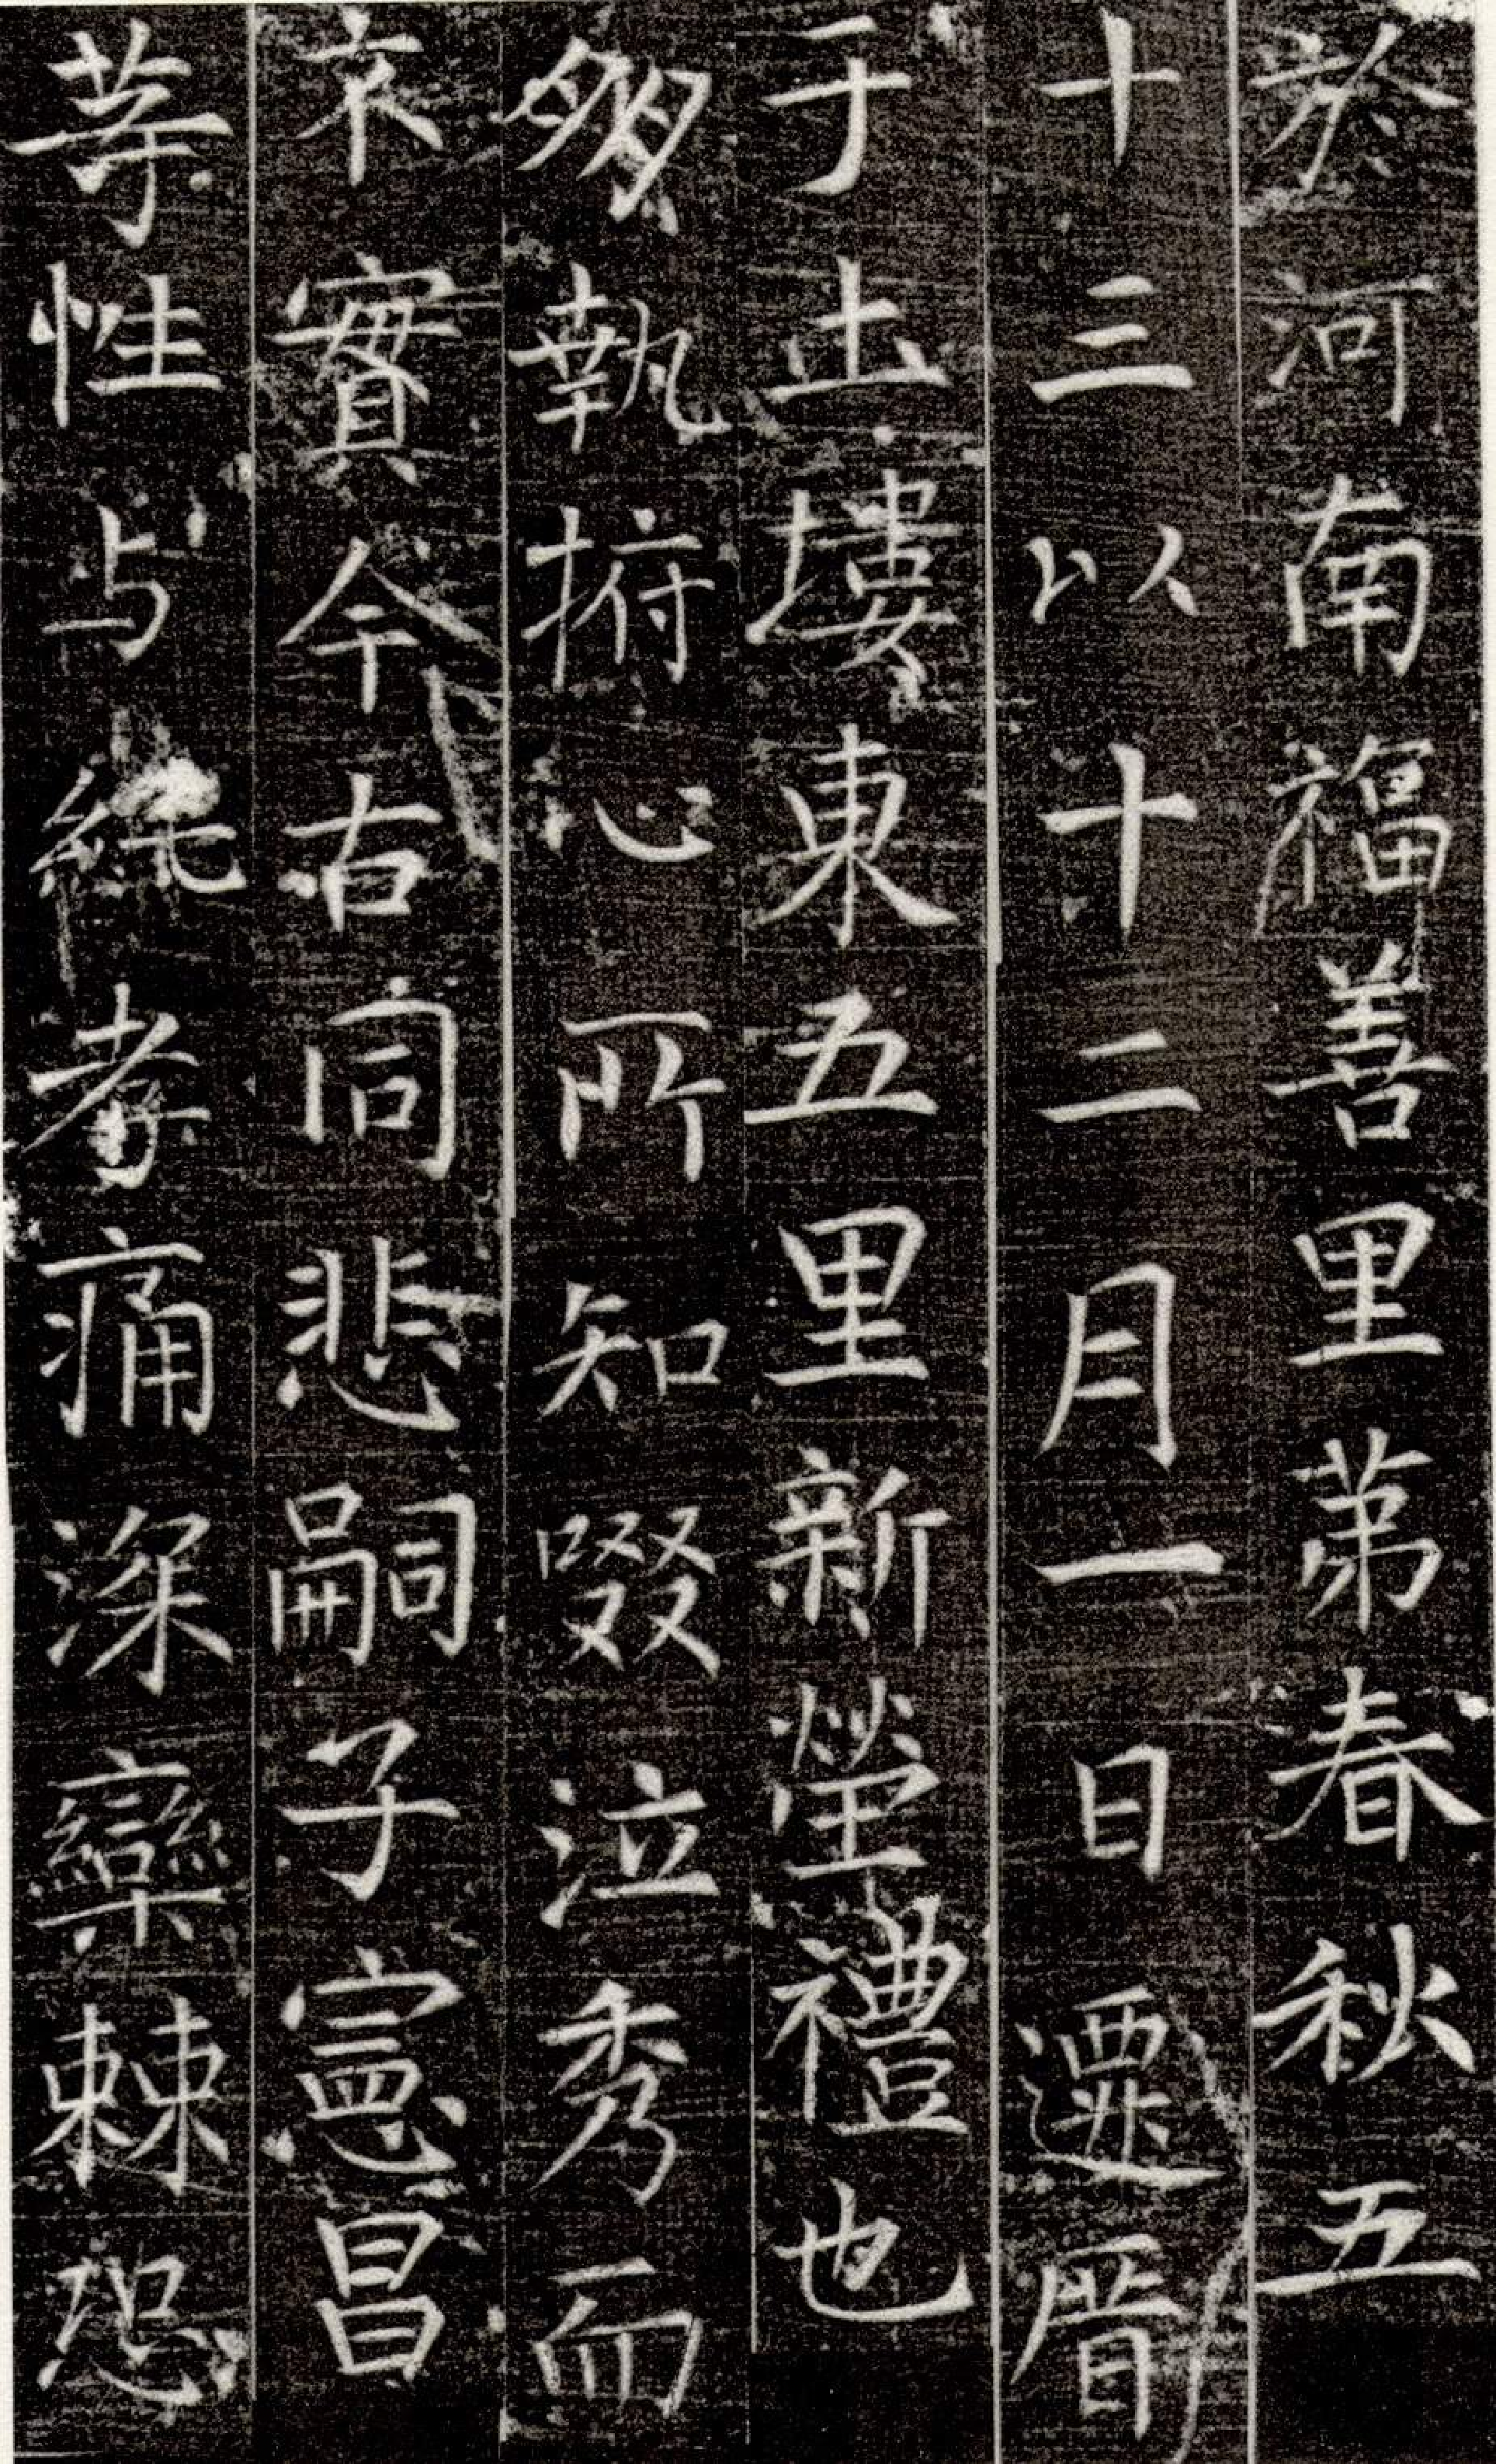 於河南福善里苐春秋五
十三以十二月一日遷厝
于土塿東五里新塋禮也
朋執拊心所知啜泣秀而
不實今古同悲嗣子憲昌
䓁性与純孝痛深欒棘恐